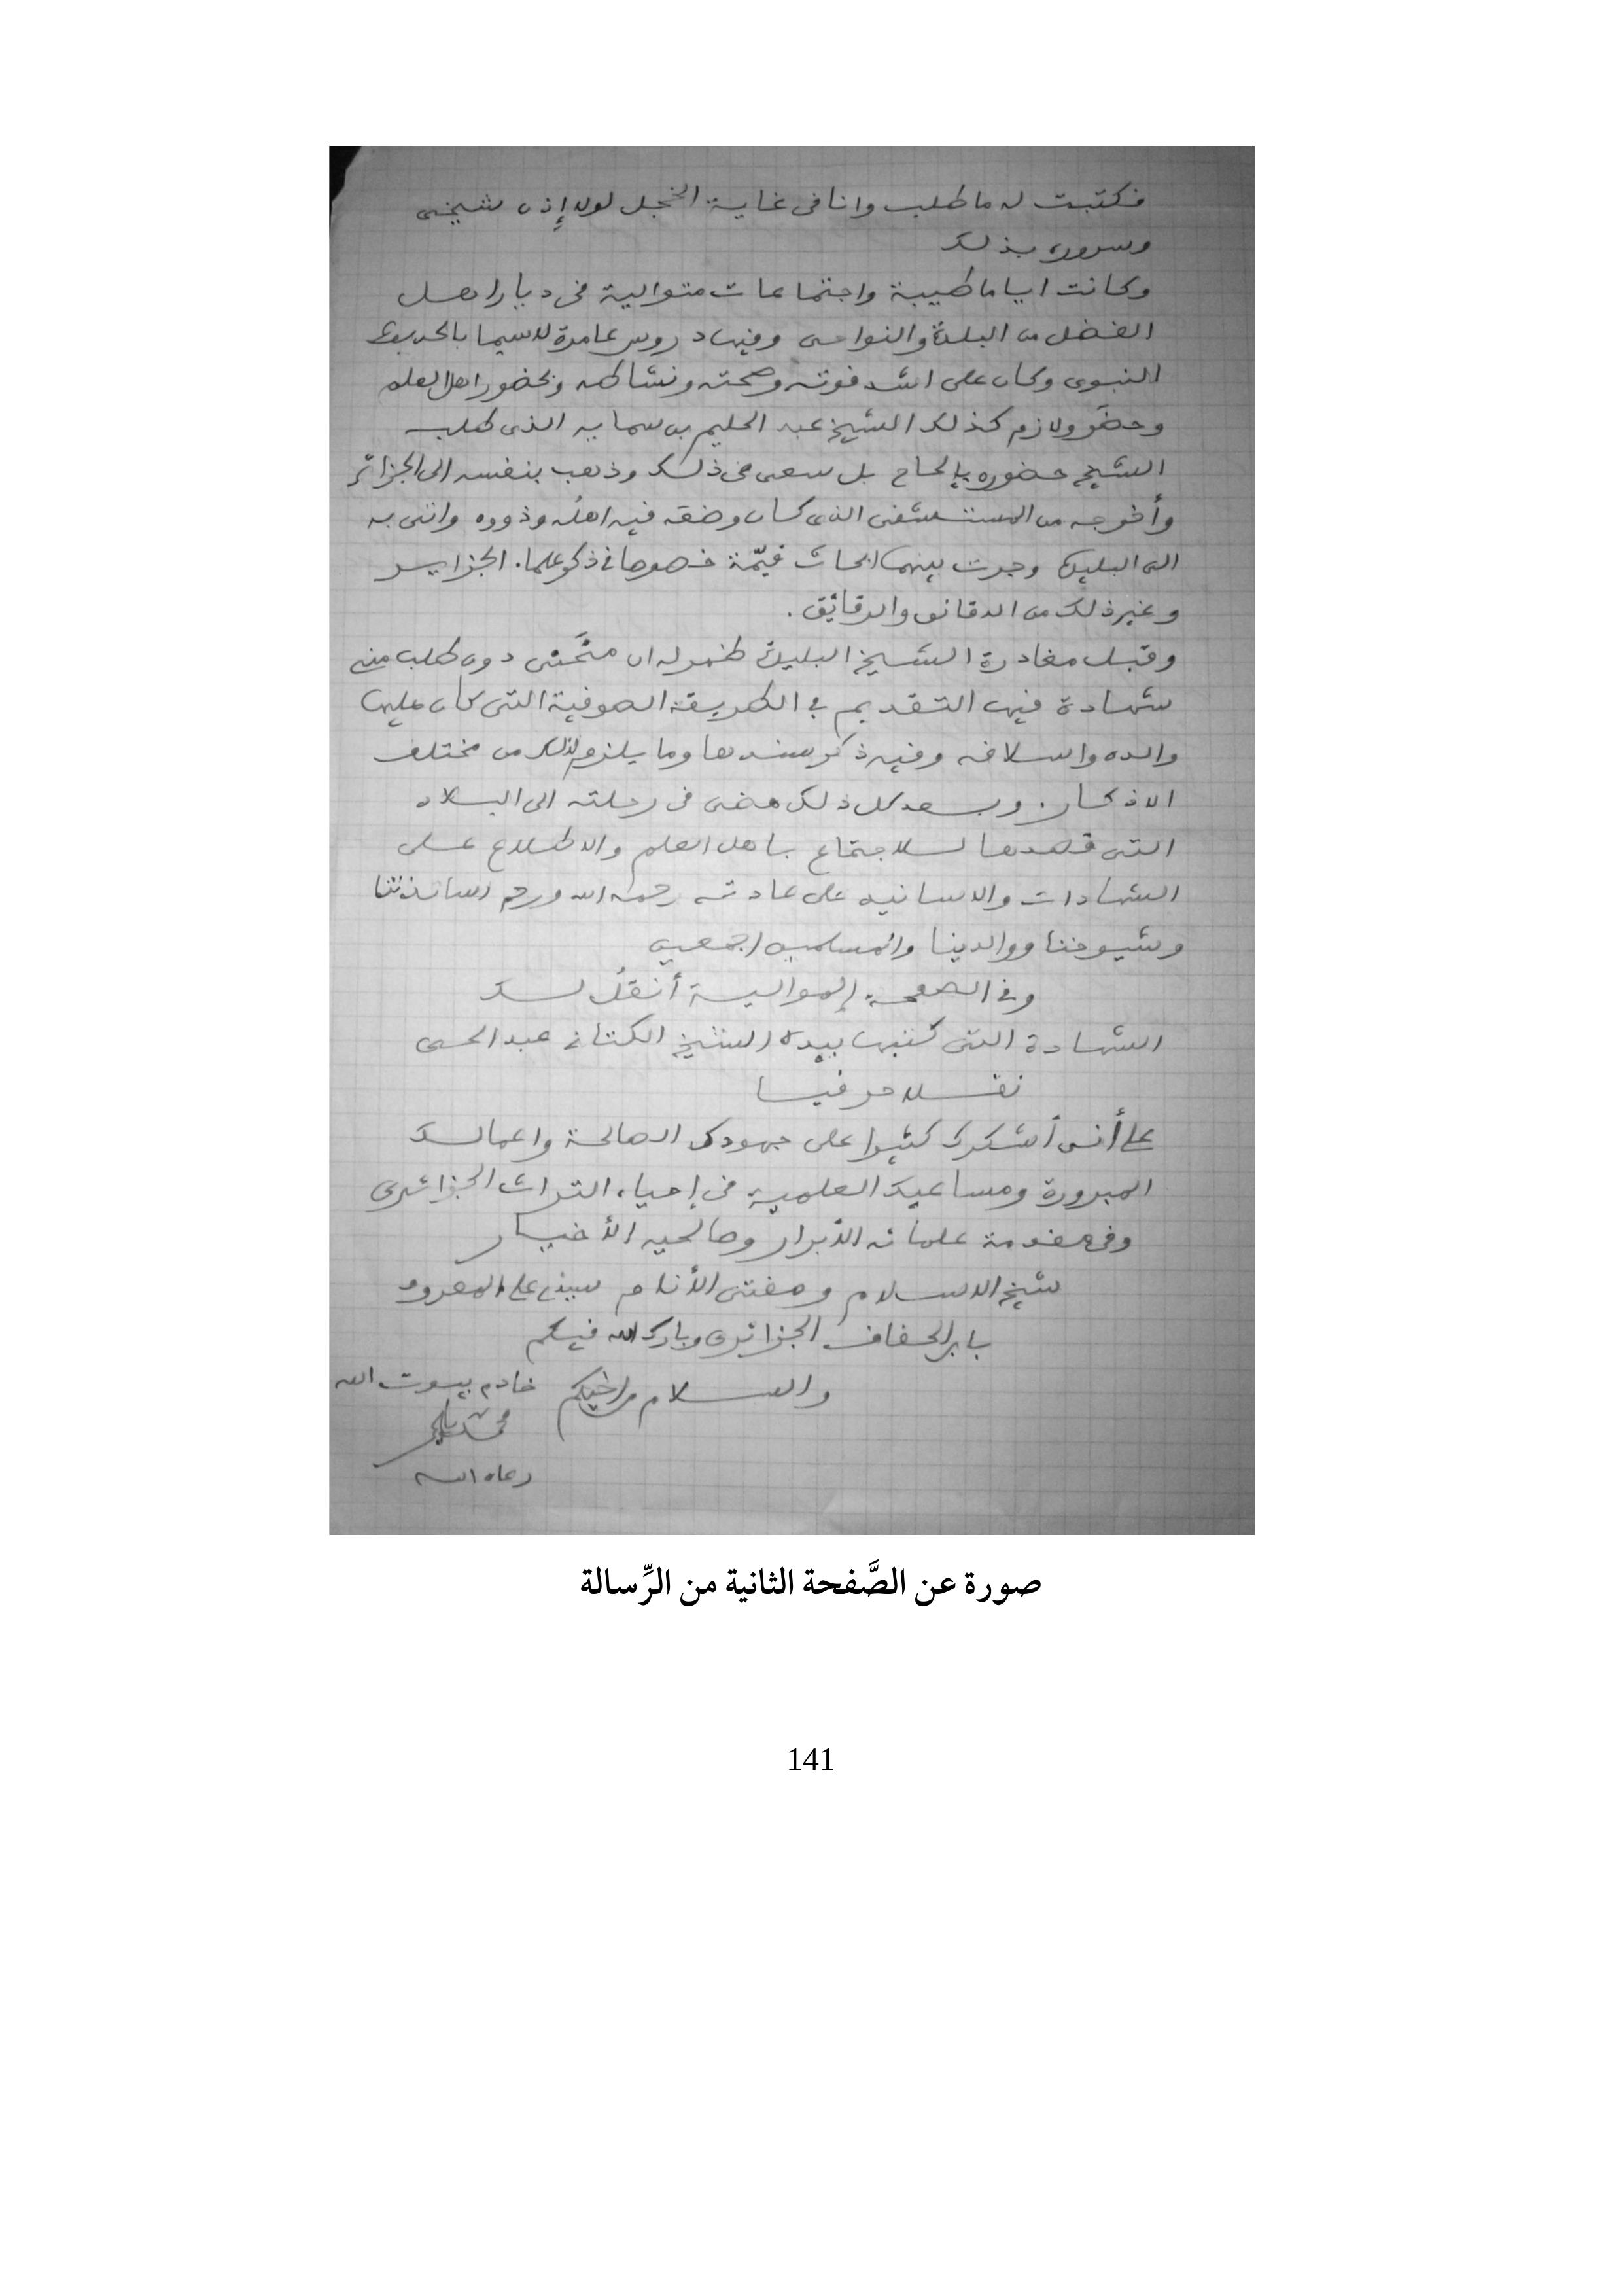 فكتبت له ما طلب وانا في غاية الخجل لولا إذن شيخي
وسروره بذلك
وكانت اياما طيبة واجتماعات متوالية في ديار اهل
الفضل من البلدة والنواحي وفيها دروس عامرة لاسيما بالحديث
النبوي وكان على اشد قوته وصحته ونشاطه وبحضور اهل العلم
وحضر ولازم كذلك الشيخ عبد الحليم بن سمايه الذي طلب
الشيخ حضوره بإلحاح بل سعى في ذلك وذهب بنفسه الى الجزائر
وأخرجه من المستشفى الذي كان وضعه فيه اهله وذووه واتى به
الى البليدة وجرت بينهما ابحاث قيّمة خصوصا في ذكر علماء الجزاير
وغير ذلك من الدقائق والرقائق.
وقبل مغادرة الشيخ البليدة ظهر له ان متّعني دون طلب مني
شهادة فيها التقديم في الطريقة الصوفية التي كان عليها
والده واسلافه وفيه ذكر سندها وما يلزم لذلك من مختلف
الاذكار. وبعد كل ذلك مضى في رحلته الى البلاد
التي قصدها للاجتماع باهل العلم والاطلاع على
الشهادات والاسانيد على عادته رحمه الله ورحم اساتذتنا
وشيوخنا ووالدينا والمسلمين اجمعين
وفي الصفحة الموالية أنقلُ لك
الشهادة التي كتبها بيده الشيخ الكتاني عبد الحي
نقلا حرفيا
على أنى أشكرك كثيرا على جهودك الصالحة واعمالك
المبرورة ومساعيك العلمية في إحياء التراث الجزائري
وفي مقدمة علمائه الأبرار وصالحيه الأخيار
شيخ الاسلام ومفتي الأنام سيدي علي المعروف
بابن الحفاف الجزائري وبارك الله فيكم
والسلام من اخيكم خادم بيوت الله
محمد
رعاه الله
صورة عن الصَّفحة الثانية من الرِّسالة
141